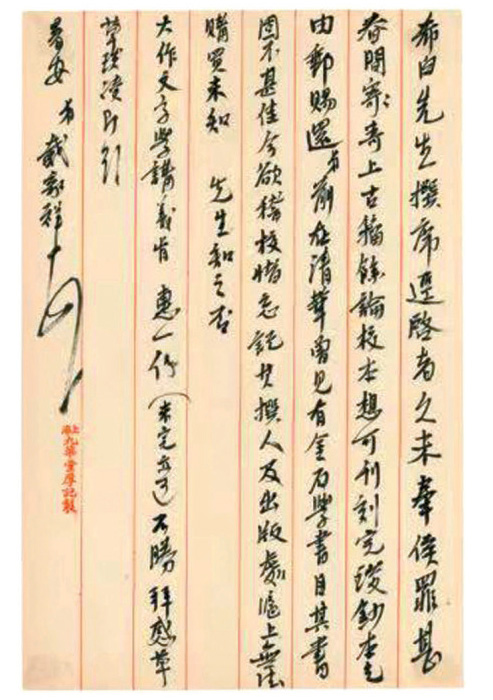 希白先生撰席逕啓者久未奉候罪甚
春間寄上古籀餘論校本想可刊刻完竣鈔本乞
由郵賜還弟前在清華曾見有金石學書目其書
固不甚佳今欲稽校惜忘記其撰人及出版處滬上無法
購買未知 先生知之否
大作文字學講義肯 惠一份(未完亦可)不勝拜感草
草
春安 弟戴家祥十
上海九華堂厚記製